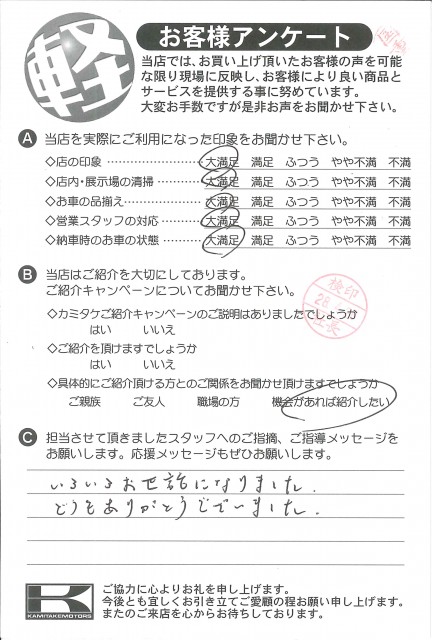 軽
お客様アンケート
当店では、お買い上げ頂いたお客様の声を可能
な限り現場に反映し、お客様により良い商品と
サービスを提供する事に努めています。
大変お手数ですが是非お声をお聞かせ下さい。
A 当店を実際にご利用になった印象をお聞かせ下さい。
◇店の印象 ……………… 大満足 満足 ふつう やや不満 不満
◇店内・展示場の清掃 ……… 大満足 満足 ふつう やや不満 不満
◇お車の品揃え …………… 大満足 満足 ふつう やや不満 不満
◇営業スタッフの対応 ……… 大満足 満足 ふつう やや不満 不満
◇納車時のお車の状態 ……… 大満足 満足 ふつう やや不満 不満
B 当店はご紹介を大切にしております。
ご紹介キャンペーンについてお聞かせ下さい。
◇カミタケご紹介キャンペーンのご説明はありましたでしょうか
はい いいえ
◇ご紹介を頂けますでしょうか
はい いいえ
◇具体的にご紹介頂ける方とのご関係をお聞かせ頂けますでしょうか
ご親族 ご友人 職場の方 機会があれば紹介したい
検印
26
社長
C 担当させて頂きましたスタッフへのご指摘、ご指導メッセージを
お願いします。応援メッセージもぜひお願いします。
いろいろお世話になりました.
どうもありがとうございました.
KAMITAKEMOTORS
ご協力に心よりお礼を申し上げます。
今後とも宜しくお引き立てご愛顧の程お願い申し上げます。
またのご来店を心からお待ちしております。